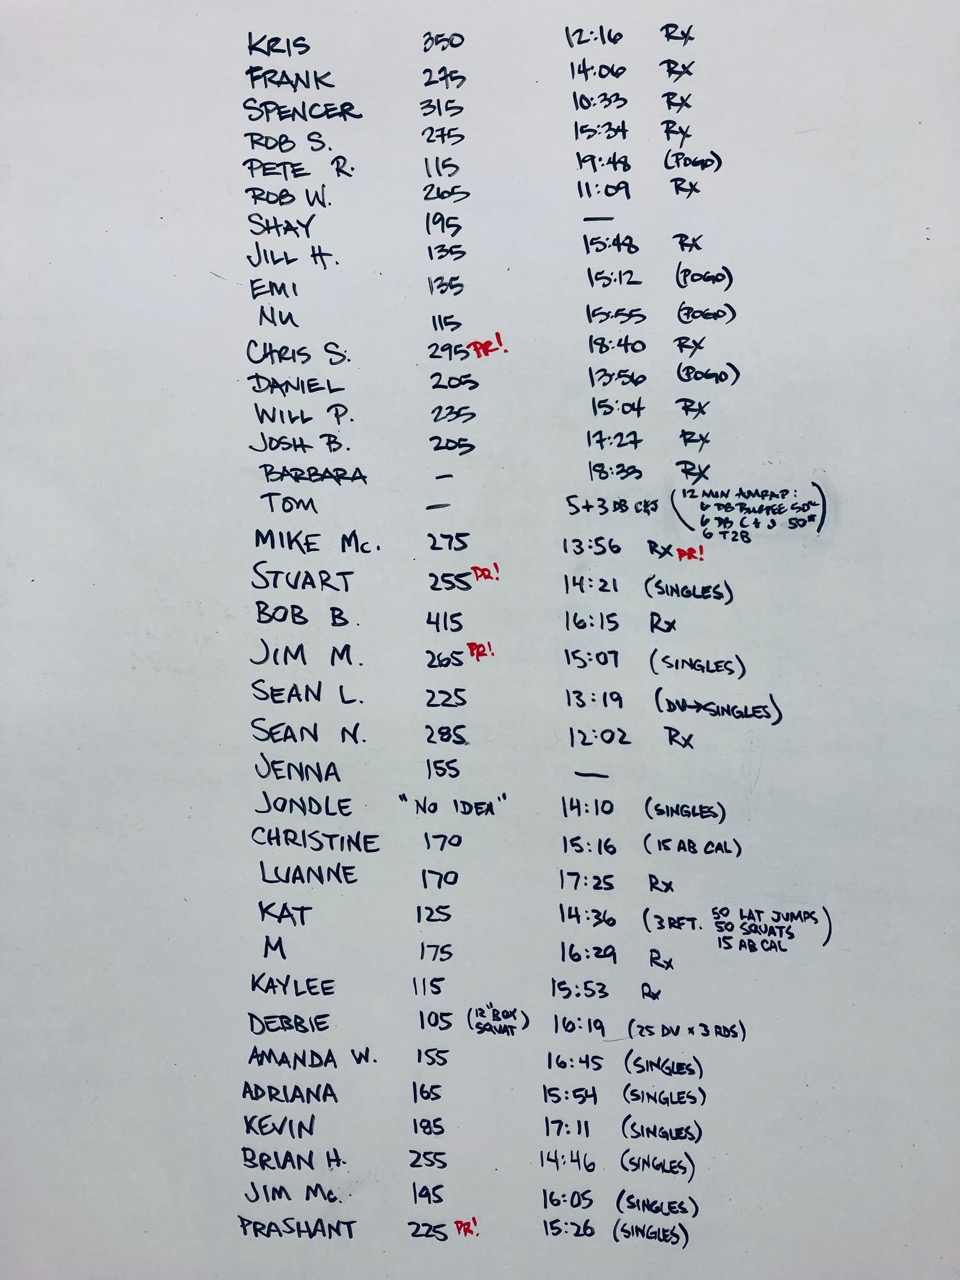 KRIS 350 12:16 Rx
FRANK 275 14:06 Rx
SPENCER 315 10:33 Rx
ROB S. 275 15:34 Rx
PETE R. 115 19:48 (POGO)
ROB W. 265 11:09 Rx
SHAY 195 —
JILL H. 135 15:48 Rx
EMI 135 15:12 (POGO)
NU 115 15:55 (POGO)
CHRIS S. 295 PR! 18:40 Rx
DANIEL 205 13:56 (POGO)
WILL P. 235 15:04 Rx
JOSH B. 205 17:27 Rx
BARBARA – 18:33 Rx
TOM – 5+3 DB C&J (12 MIN AMRAP:
6 DB BURPEE 50#
6 DB C & J 50#
6 T2B)
MIKE Mc. 275 13:56 Rx PR!
STUART 255 PR! 14:21 (SINGLES)
BOB B. 415 16:15 Rx
JIM M. 265 PR! 15:07 (SINGLES)
SEAN L. 225 13:19 (DU→SINGLES)
SEAN N. 285 12:02 Rx
JENNA 155 —
JONDLE "NO IDEA" 14:10 (SINGLES)
CHRISTINE 170 15:16 (15 AB CAL)
LUANNE 170 17:25 Rx
KAT 125 14:36 (3 RFT. 50 LAT JUMPS
50 SQUATS
15 AB CAL)
M 175 16:29 Rx
KAYLEE 115 15:53 Rx
DEBBIE 105 (12" BOX SQUAT) 16:19 (25 DU x 3 RDS)
AMANDA W. 155 16:45 (SINGLES)
ADRIANA 165 15:54 (SINGLES)
KEVIN 185 17:11 (SINGLES)
BRIAN H. 255 14:46 (SINGLES)
JIM Mc. 195 16:05 (SINGLES)
PRASHANT 225 PR! 15:26 (SINGLES)